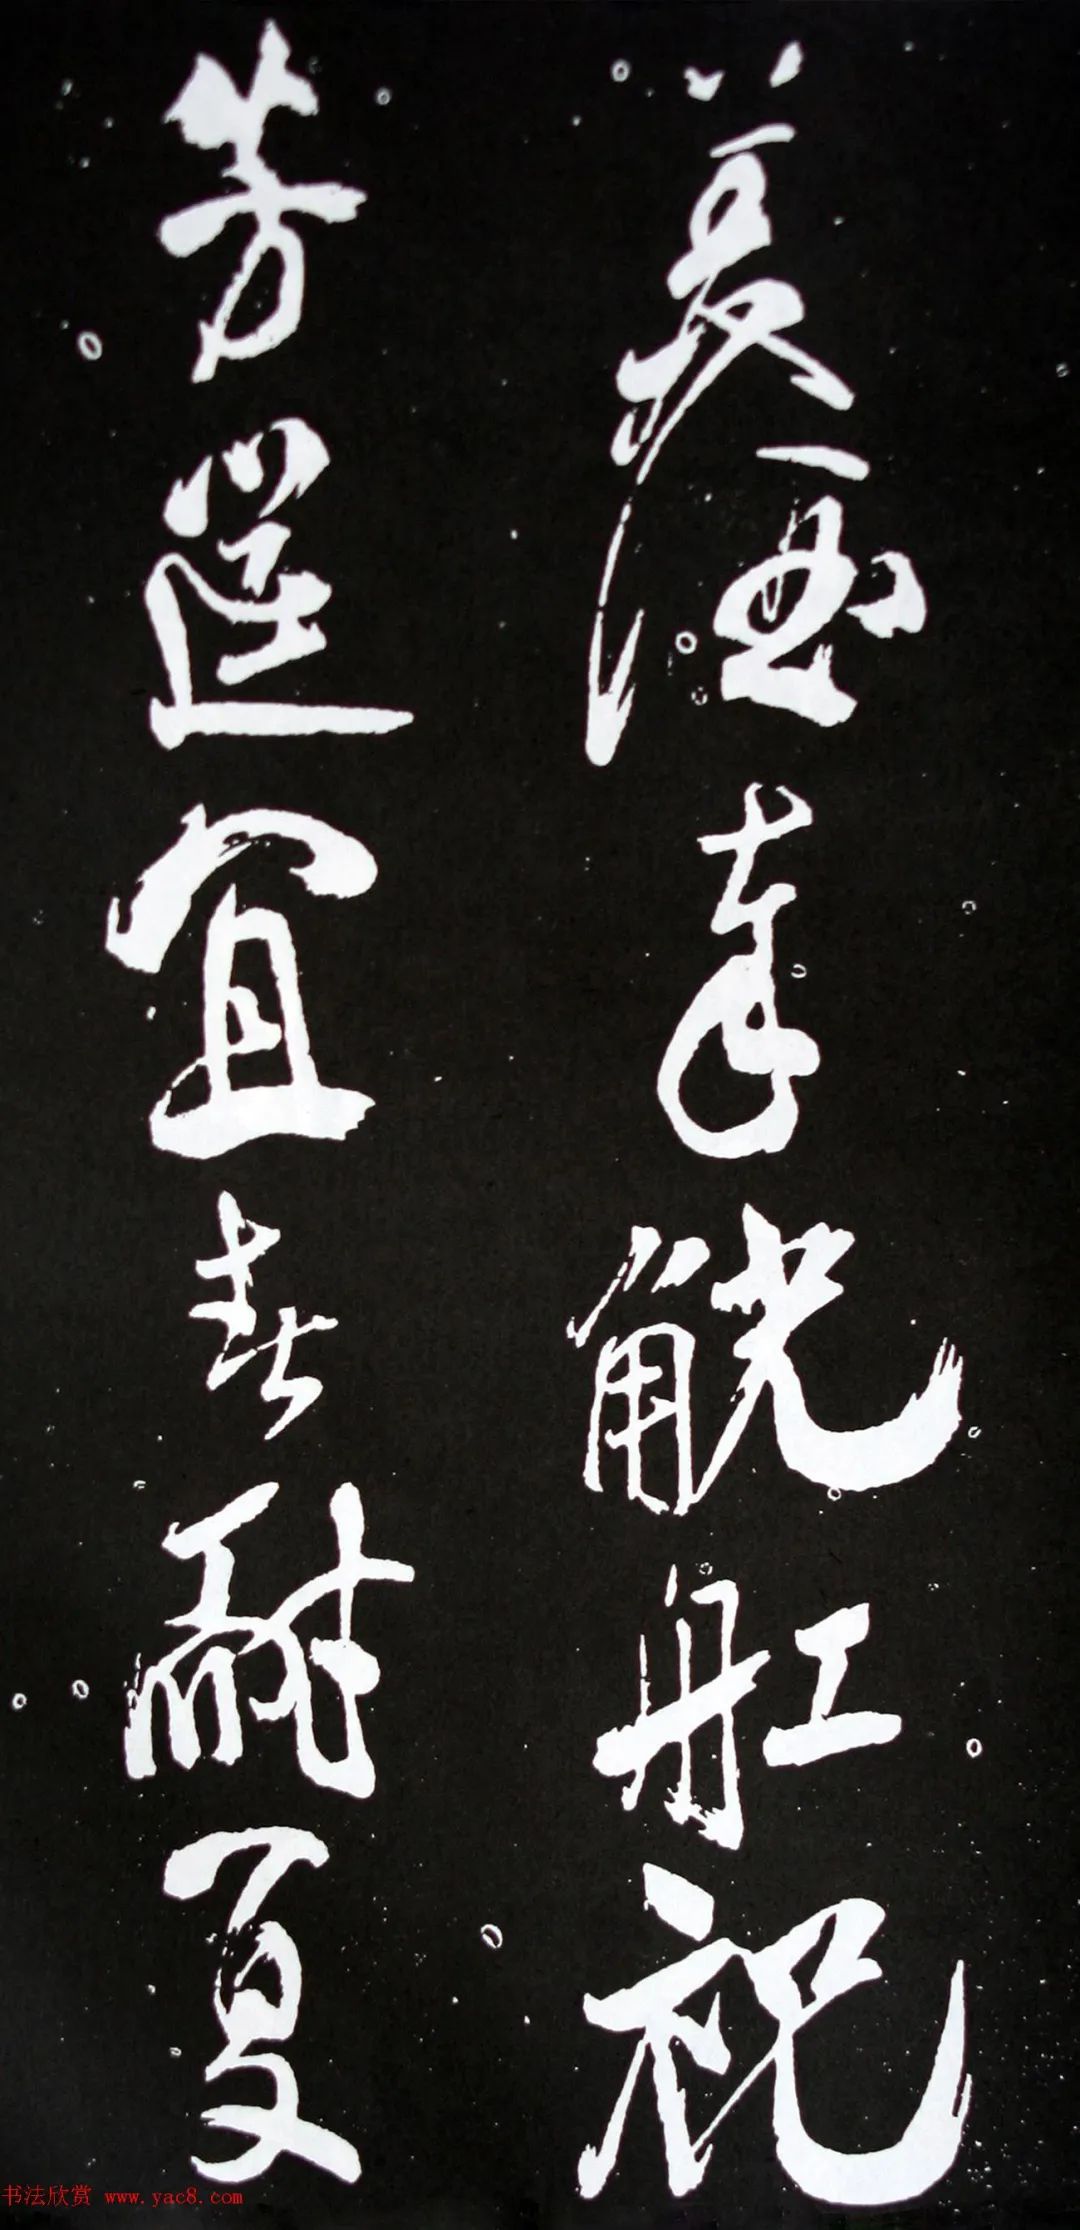 美酒奉觥舡祝
芳筵宜春耐夏
书法欣赏 www.yac8.com